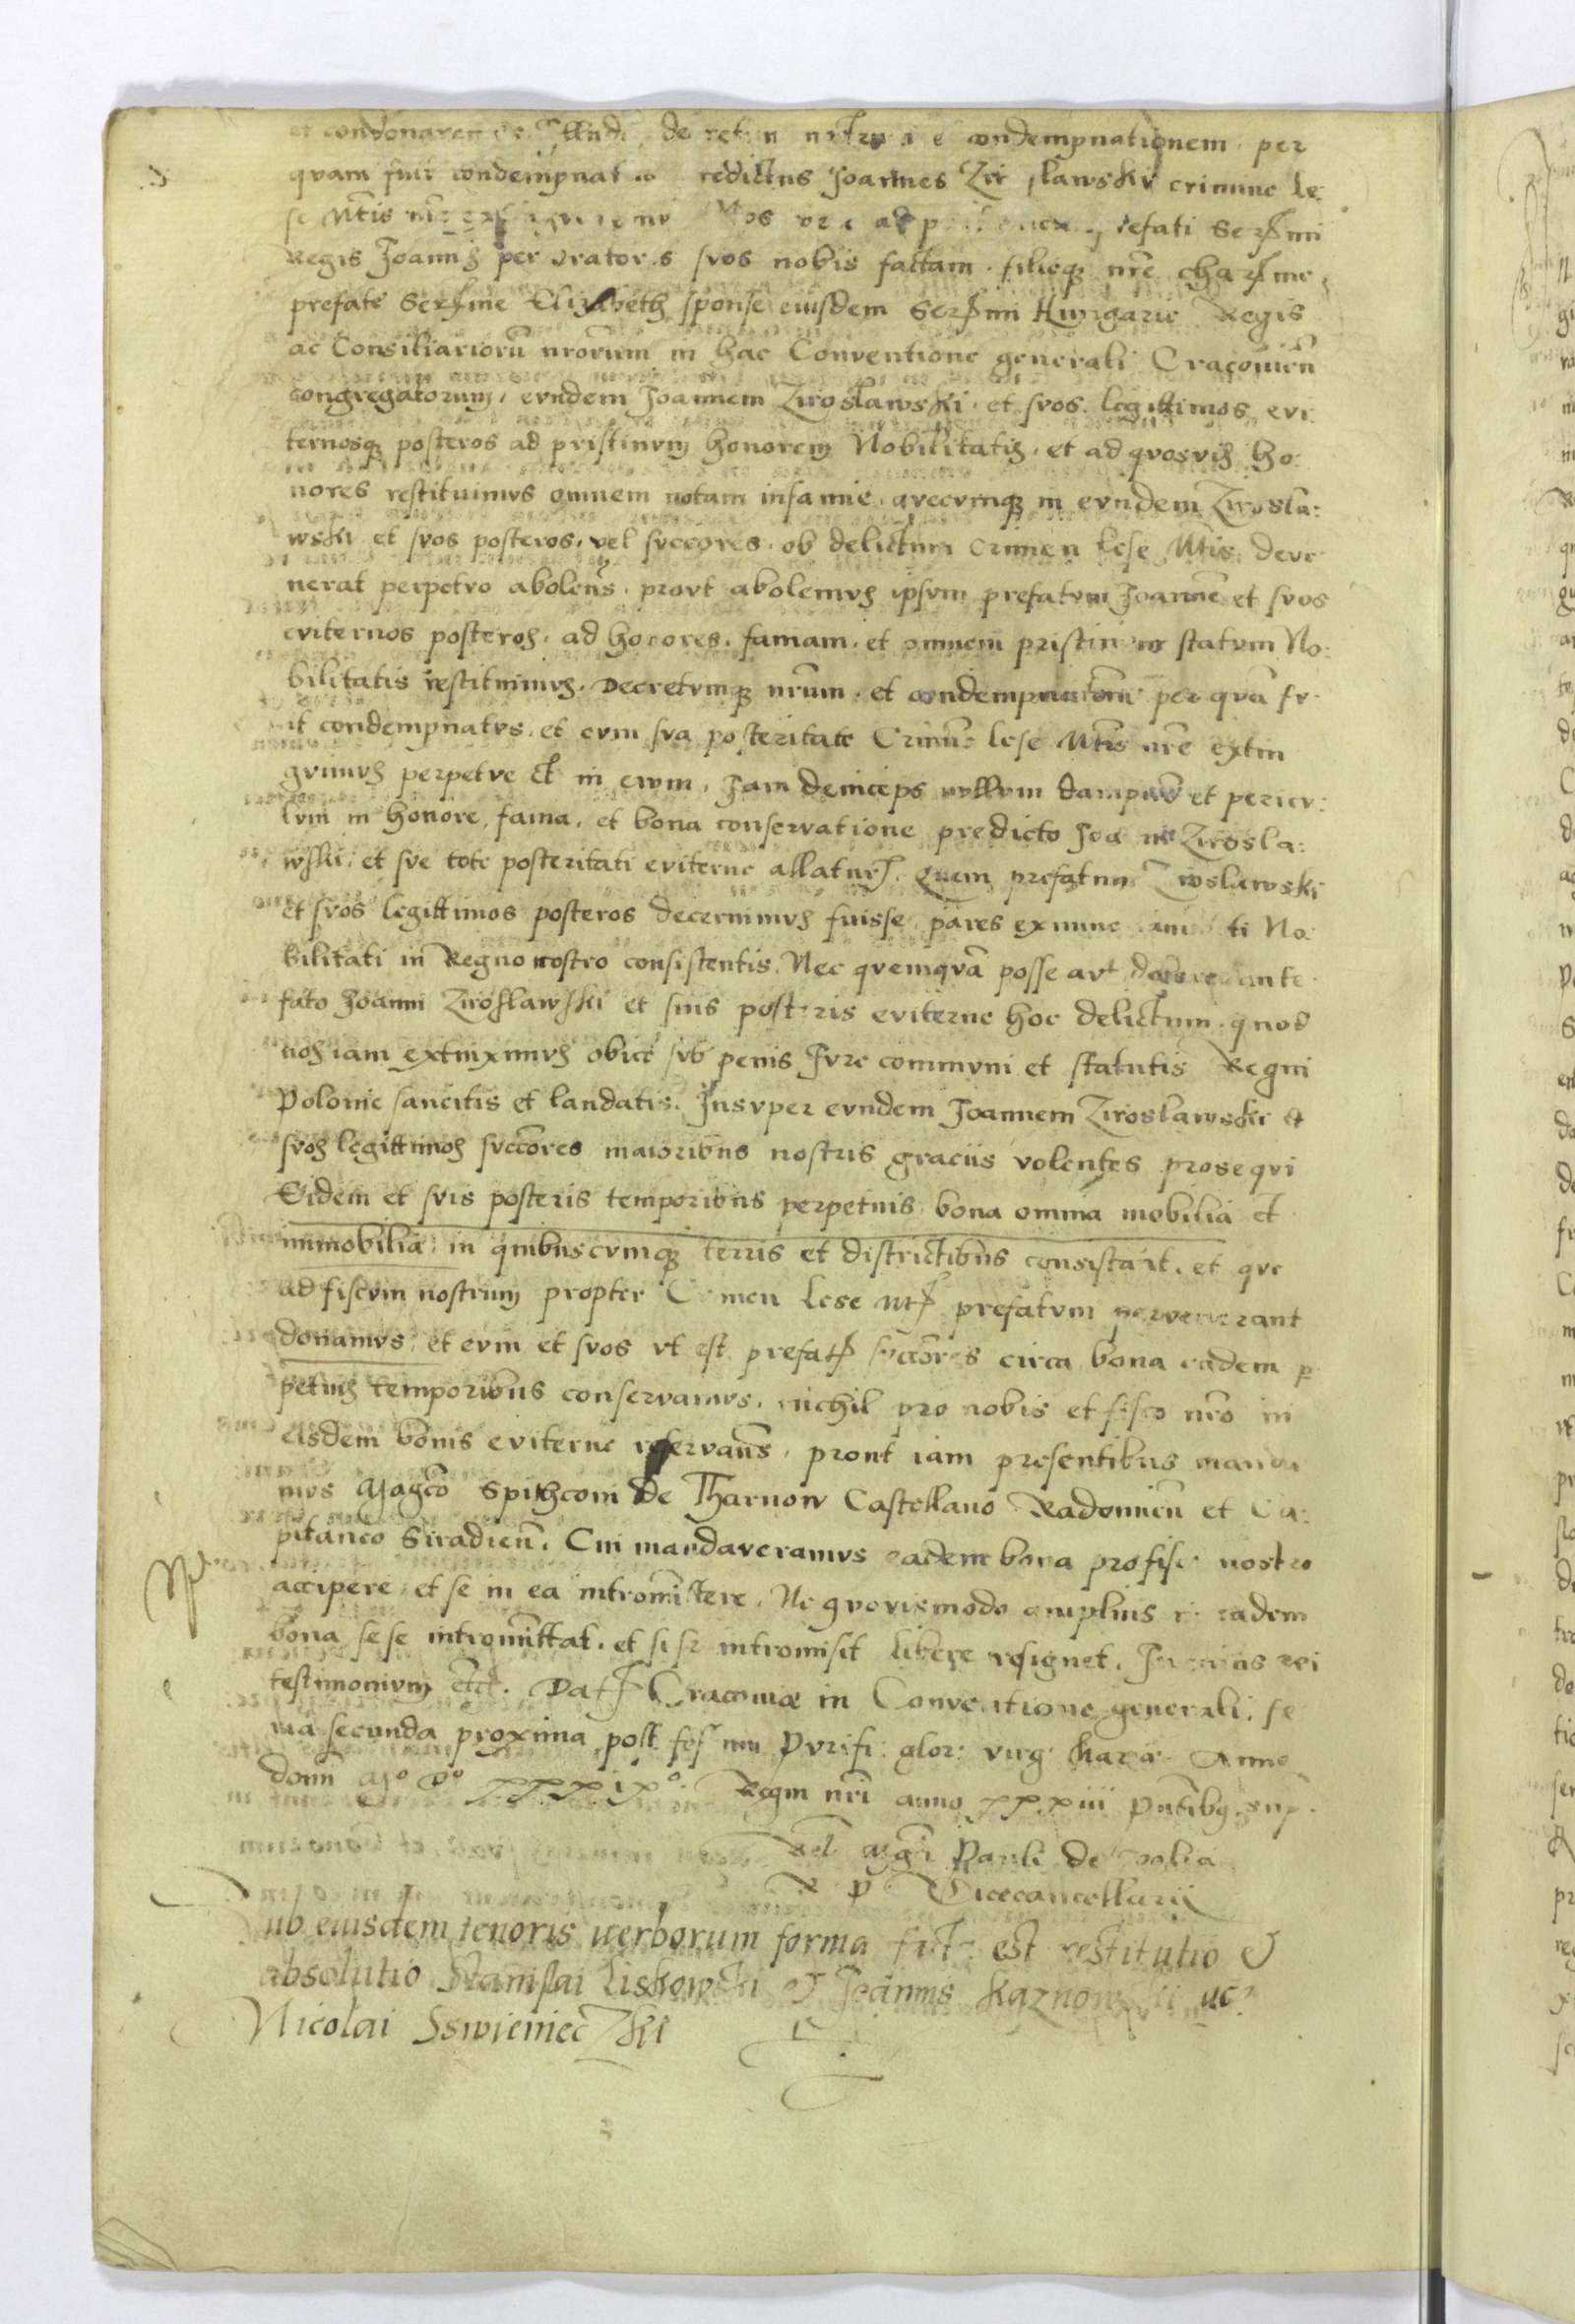 et condonaremus illud decretum nostrum et condempnationem per
quam fuit condempnatus predictus Joannes Ziroslawski crimine le:
se Mtis nre Nos prefati Serſmi
Regis Joannis per oratores svos nobis factam. filieqz nre charſme
prefate Serſme Elizabeth sponse eiusdem Serſmi Hungarie Regis
ac Consiliariorũ nrorum in hac Conventione generali Cracovien̄
congregatorum, evndem Joannem Ziroslawski et svos legittimos evi
ternosqz posteros ad pristinvm honorem Nobilitatis, et ad qvosvis ho:
nores restituimvs omnem notam infamie, qvecvmqz in evndem Zirosla:
wski et svos posteros, vel svccores, ob delictum crimen lese Mtis deve
nerat perpetvo abolens, provt abolemvs ipsvm prefatvm Joannē et svos
eviternos posteros, ad honores, famam, et omnem pristinvm statvm No:
bilitatis restituimvs. Decretvmqz nrūm, et condempnationem per qvā fv
it condempnatvs, et cvm sva posteritate Crimine lese Mtis nre extin
gvimvs perpetve et in ewm, Jam deinceps nvllvm dampnū et pericv:
lvm in honore, fama, et bona conservatione predicto Joanni Zirosla:
wski, et sve tote posteritati eviterne allaturſ. Qvem prefatum Ziroslawski
et svos legittimos posteros decernimvs fuisse pares ex nunc No
bilitati in Regno nostro consistentis. Nec qvemqvā posse avt debere ante
fato Joanni Ziroslawski et suis posteris eviterne hoc delictum, quod
nos iam extinximvs obicē svb penis Jvre commvni et statutis Regni
Polonie sancitis et laudatis. Insvper evndem Joannem Ziroslawski et
svos legittimos svccores maioribus nostris graciis volentes proseqvi
Eidem et svis posteris temporibus perpetuis bona omnia mobilia et
immobilia in quibuscvmqz terris et districtibus consistant, et qve
ad fiscvm nostrum propter Crimen lese Mtſ prefatvm pervenerant
donamvs, et evm et svos vt est prefatſ svccores circa bona eadem p
petuis temporibus conservamvs, nichil pro nobis et fisco nro in
eisdem bonis eviterne reservans, prout iam presentibus manda
mvs Magco Spithconi de Tharnow Castellano Radomien̄ et Ca:
pitaneo Siradien̄. Cui mandaveramvs eadem bona pro fisco nostro
accipere, et se in ea intromittere, Ne qvovismodo amplius in eadem
bona sese intromittat, et si se intromisit libere resignet. In cuius rei
testimonivm etct. Datſ Cracovie in Conventione generali, fe
ria secunda proxima post festum Pvrifi: glor: virg: Marie. Anno
domi Mo Do xxxixo. Regni nri anno xxxiii pñtibq sup.
Rel Mgci Pauli de Volia
R P Vicecancellarii
Sub eiusdem tenoris uerborum forma facta est restitutio et
absolutio Stanislai Liskowski et Joannis Kaznowski ac
Nicolai Sswienieczki